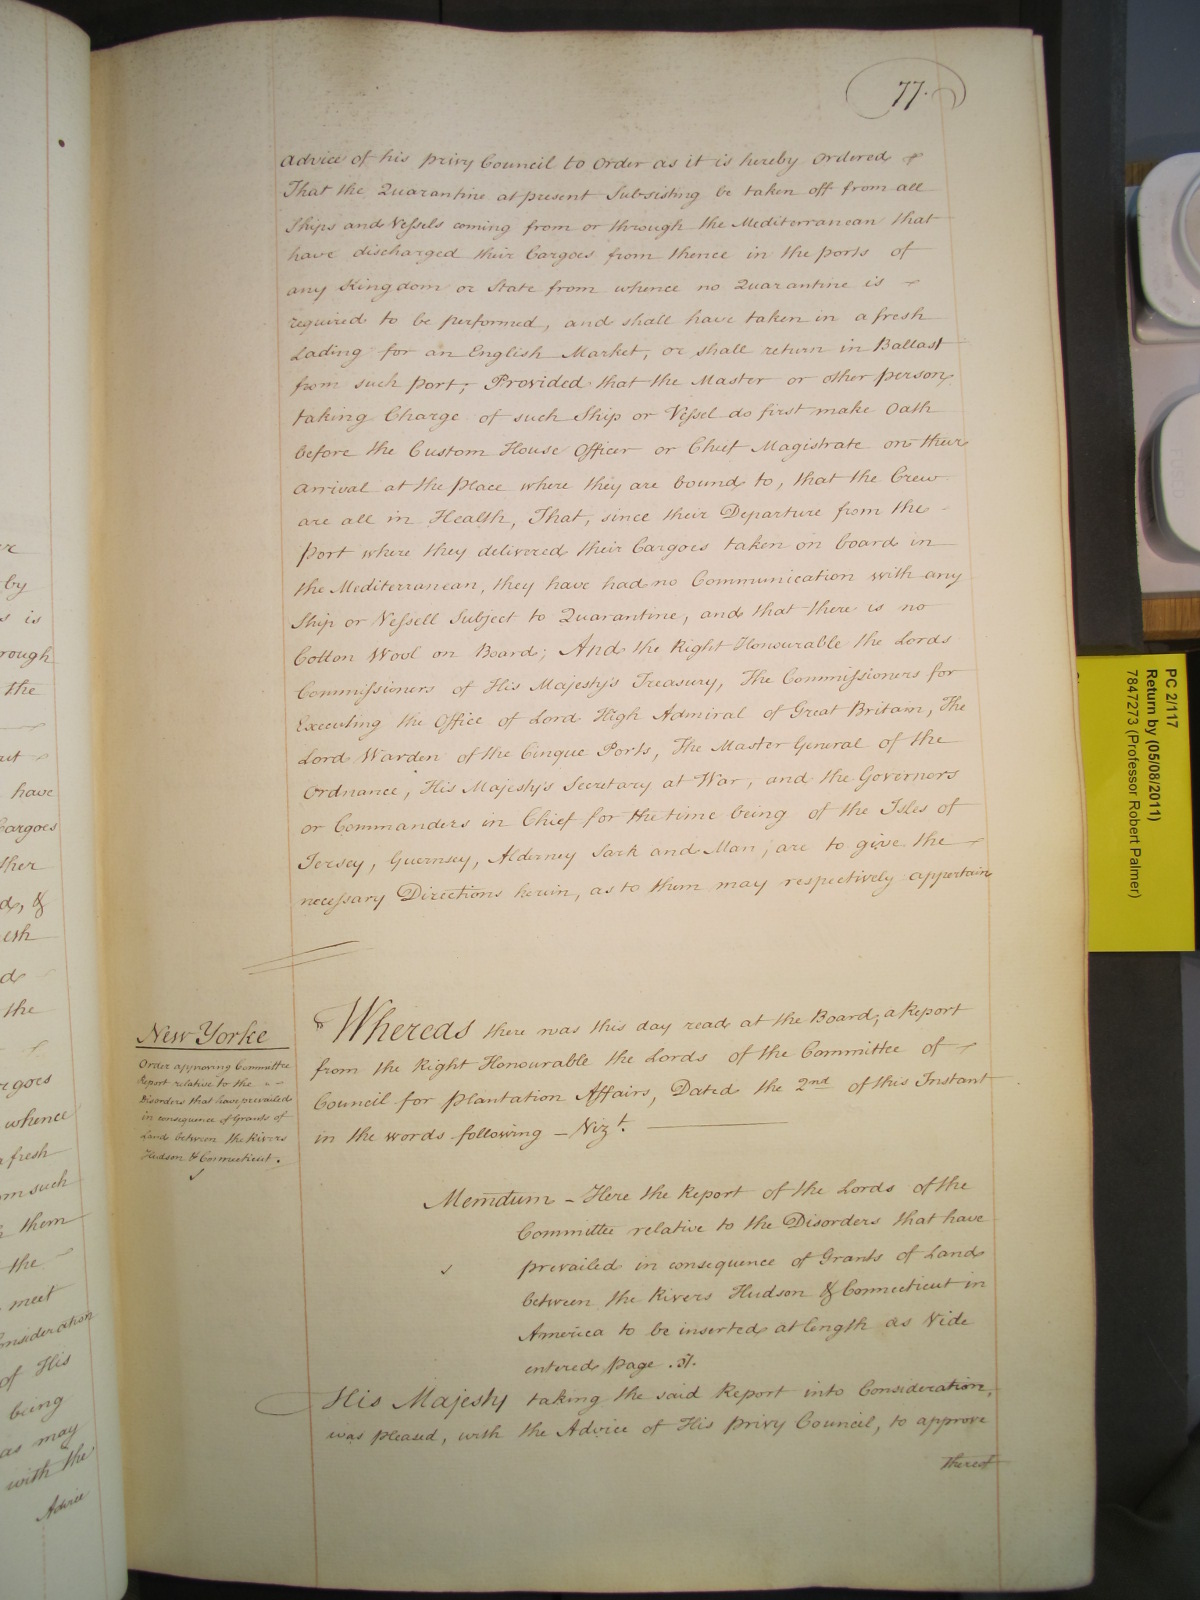 77.
advice of his privy Council to Order as it is hereby ordered
That the Quarantine at present Subsisting be taken off from all
Ships and Vessels coming from or through the Mediterranean that
have discharged their Cargoes from thence in the ports of
any Kingdom or State from whence no Quarantine is
required to be performed, and shall have taken in a fresh
Lading for an English Market, or shall return in Ballast
from such port; Provided that the Master or other person
taking Charge of such Ship or Vessel do first make Oath
before the Custom House Officer or Chief Magistrate on their
arrival at the place where they are bound to, that the Crew
are all in Health, That, since their Departure from the
Port where they delivered their Cargoes taken on board in
the Mediterranean, they have had no Communication with any
Ship or Vessell Subject to Quarantine, and that there is no
Cotton Wool on Board; And the Right Honourable the Lords
Commissioners of His Majesty's Treasury, The Commissioners for
Executing the Office of Lord High Admiral of Great Britain, The
Lord Warden of the Cinque Ports, The Master General of the
Ordnance, His Majesty's Secretary at War, and the Governors
or Commanders in Chief for the time being of the Isles of
Jersey, Guernsey, Alderney Sark and Man; are to give the
necessary Directions herein, as to them may respectively appertain
New Yorke
Order approving Committee
Report relative to the
Disorders that have prevailed
in consequence of Grants of
Land between the Rivers
Hudson & Connecticut.
Whereas there was this day read at the Board, a Report
from the Right Honourable the Lords of the Committee of
Council for plantation Affairs, Dated the 2nd of this Instant
in the words following – Vizt.
Memdum – Here the Report of the Lords of the
Committee relative to the Disorders that have
prevailed in consequence of Grants of Land
between the Rivers Hudson & Connecticut in
America to be inserted at length as Vide
entered page
His Majesty taking the said Report into Consideration,
was pleased, with the Advice of His privy Council, to approve
thereof
er
by
s is
rough
the
have
Cargoes
ther
d, &
esh
d
the
rgoes
whence
a fresh
om such
them
the
meet
onsideration
of His
being
as may
with the
Advice
PC 2/117
Return by (05/08/2011)
7847273 (Professor Robert Palmer)